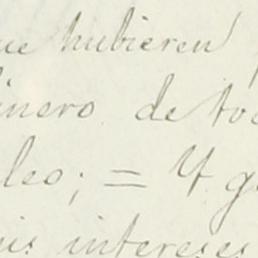 ue hubieren
inero de to
leo; = Y g
us intereses